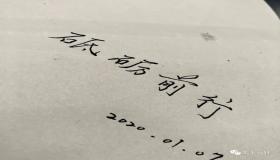 砥砺前行
2020.01.07